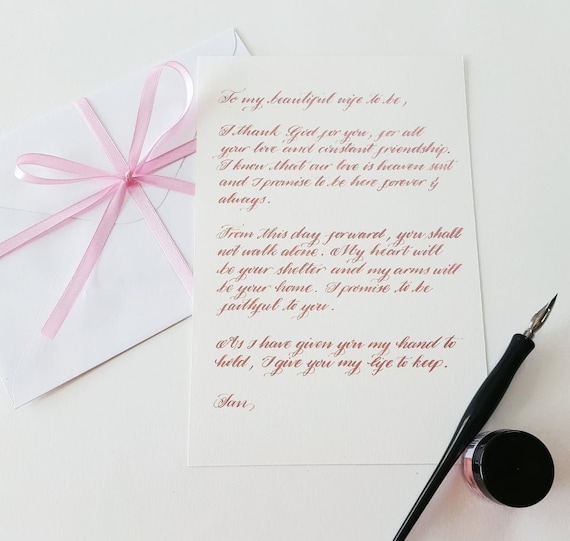 To my beautiful wife to be,
I thank God for you, for all
your love and constant friendship.
I know that our love is heaven sent
and I promise to be here forever &
always.
From this day forward, you shall
not walk alone. My heart will
be your shelter and my arms will
be your home. I promise to be
faithful to you.
As I have given you my hand to
hold, I give you my life to keep.
Ian,